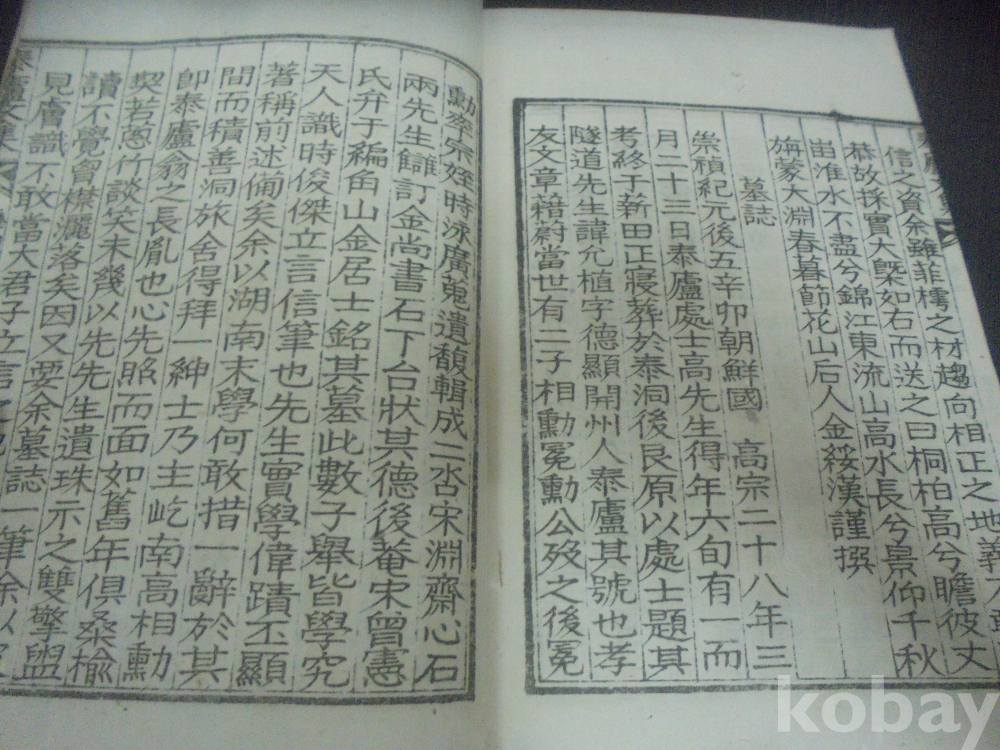 信之資余雖菲樗之材趨向相正之地義不
恭故採實大槩如右而送之曰桐柏高兮瞻彼丈
串淮水不盡兮錦江東流山高水長兮景仰千秋
旃蒙大淵春暮節花山后人金綏漢謹撰
墓誌
崇禎紀元後五辛卯朝鮮國 高宗二十八年三
月二十三日泰廬處士高先生得年六旬有一而
考終于新田正寢葬於泰洞後艮原以處士題其
隧道先生諱允植字德顯開州人泰廬其號也孝
友文章藉尉當世有二子相勳冕勳公歿之後冕
勳率宗姪時泳廣蒐遺馥輯成二呇宋淵齋心石
兩先生讎訂金尚書石下台狀其德後菴宋曾憲
氏弁于編角山金居士銘其墓此數子舉皆學究
天人識時俊傑立言信筆也先生實學偉蹟丕顯
著稱前述備矣余以湖南末學何敢措一辭於其
間而積善洞旅舍得拜一紳士乃主屹南高相勳
卽泰廬翁之長胤也心先照而面如舊年俱桑榆
契若蔥竹談笑未幾以先先生遺珠示之雙擎盥
讀不覺曾襟灑落矣因又要余墓誌一筆余以
見膚識不敢當大君子立言之
泰廬文集
kobay